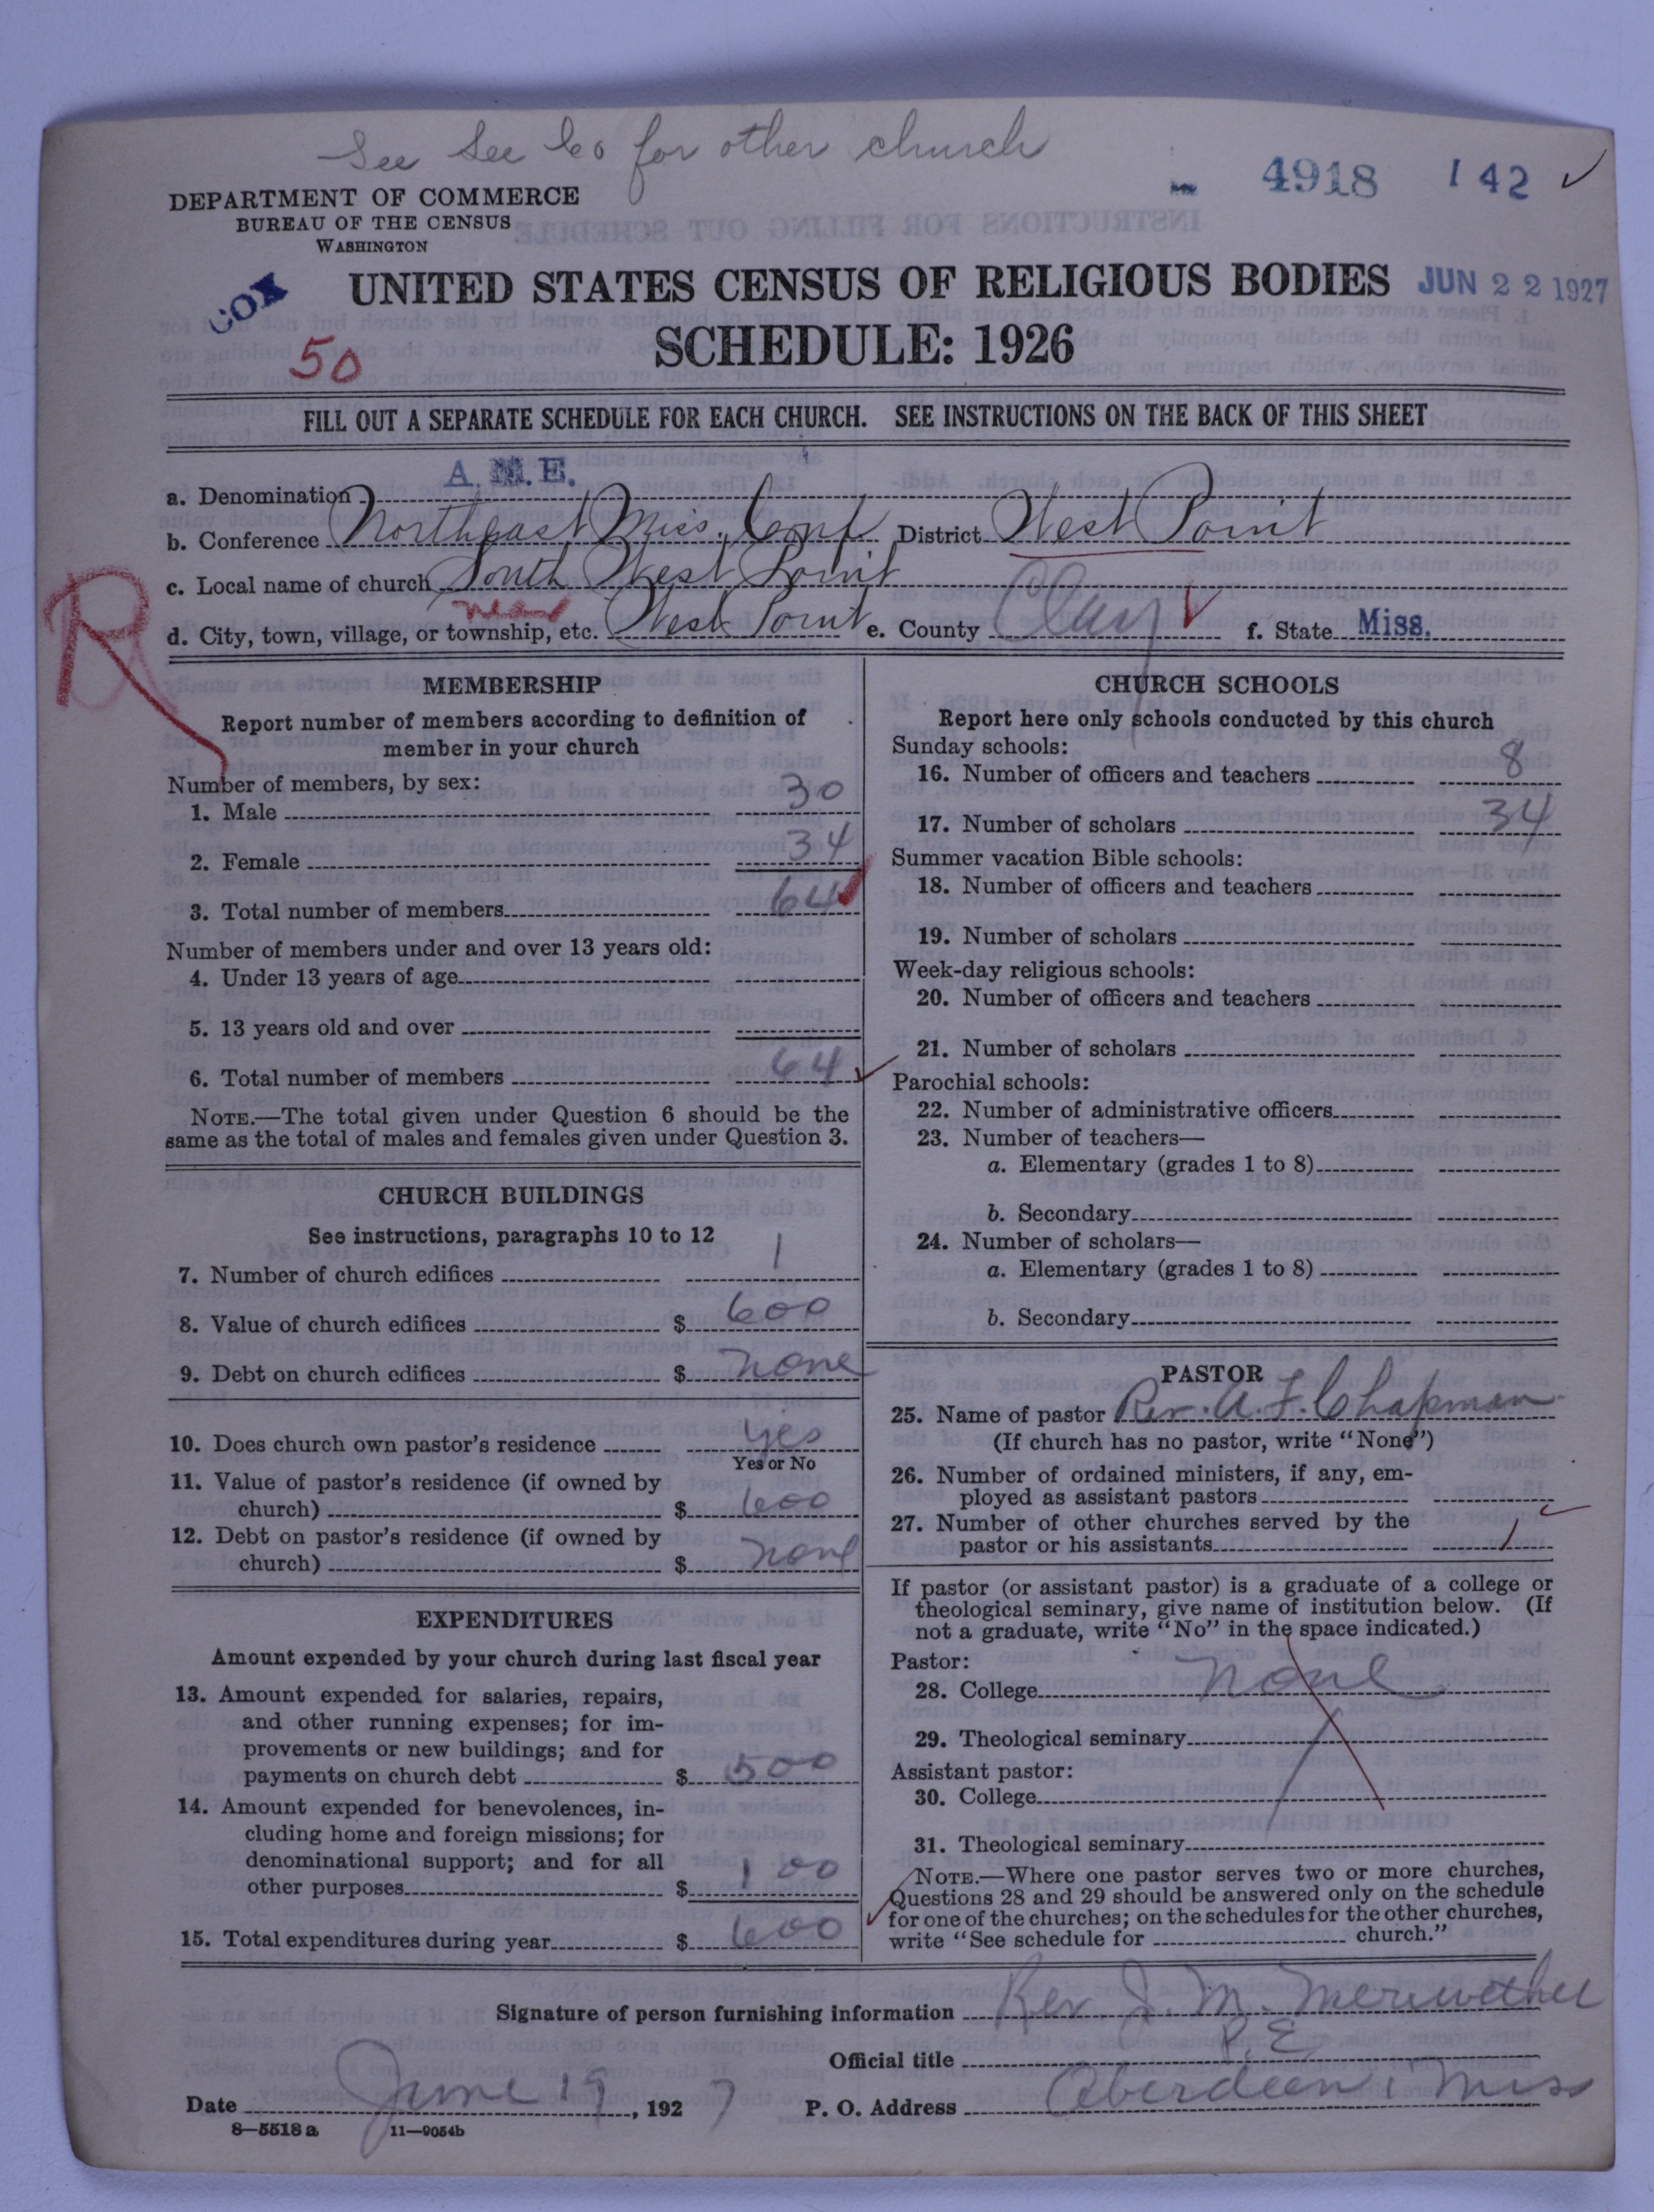 See See Co for other church
4918 142 ✓
DEPARTMENT OF COMMERCE
BUREAU OF THE CENSUS
WASHINGTON
COX
UNITED STATES CENSUS OF RELIGIOUS BODIES JUN 22 1927
50
SCHEDULE: 1926
FILL OUT A SEPARATE SCHEDULE FOR EACH CHURCH. SEE INSTRUCTIONS ON THE BACK OF THIS SHEET
a. Denomination A. M. E.
b. Conference Northeast Miss. Conf District West Point
c. Local name of church South West Point
R
near
d. City, town, village, or township, etc. West Point e. County Clay f. State Miss.
MEMBERSHIP
Report number of members according to definition of
member in your church
Number of members, by sex:
1. Male 30
2. Female 34
3. Total number of members 64
Number of members under and over 13 years old:
4. Under 13 years of age
5. 13 years old and over
6. Total number of members 64
NOTE.—The total given under Question 6 should be the
same as the total of males and females given under Question 3.
CHURCH BUILDINGS
See instructions, paragraphs 10 to 12
7. Number of church edifices 1
8. Value of church edifices $ 600
9. Debt on church edifices $ none
10. Does church own pastor's residence yes
Yes or No
11. Value of pastor's residence (if owned by
church) $ 600
12. Debt on pastor's residence (if owned by
church) $ none
EXPENDITURES
Amount expended by your church during last fiscal year
13. Amount expended for salaries, repairs,
and other running expenses; for im-
provements or new buildings; and for
payments on church debt $ 500
14. Amount expended for benevolences, in-
cluding home and foreign missions; for
denominational support; and for all
other purposes $ 100
15. Total expenditures during year $ 600
CHURCH SCHOOLS
Report here only schools conducted by this church
Sunday schools:
16. Number of officers and teachers 8
17. Number of scholars 34
Summer vacation Bible schools:
18. Number of officers and teachers
19. Number of scholars
Week-day religious schools:
20. Number of officers and teachers
21. Number of scholars
Parochial schools:
22. Number of administrative officers
23. Number of teachers—
a. Elementary (grades 1 to 8)
b. Secondary
24. Number of scholars—
a. Elementary (grades 1 to 8)
b. Secondary
PASTOR
25. Name of pastor Rev. A. F. Chapman
(If church has no pastor, write "None")
26. Number of ordained ministers, if any, em-
ployed as assistant pastors
27. Number of other churches served by the
pastor or his assistants 1
If pastor (or assistant pastor) is a graduate of a college or
theological seminary, give name of institution below. (If
not a graduate, write "No" in the space indicated.)
Pastor:
28. College none
29. Theological seminary
Assistant pastor:
30. College
31. Theological seminary
NOTE.—Where one pastor serves two or more churches,
Questions 28 and 29 should be answered only on the schedule
for one of the churches; on the schedules for the other churches,
write "See schedule for church."
Signature of person furnishing information Rev. J. M. Meriwether
Official title P. E.
Date June 19, 1927 P. O. Address Aberdeen, Miss
8—5518 a 11—9054b